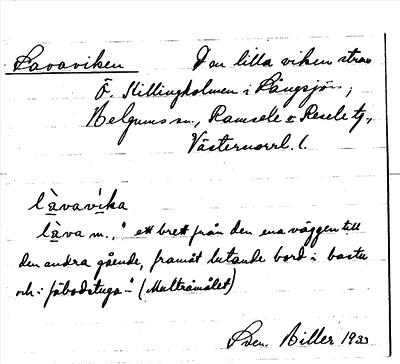 Lavaviken Den lilla viken strax
Ö. Killingholmen i Långsjön,
Helgums sn., Ramsele o Resele tg,
Västernorrl. l.
làvavíka
làva m., "ett brett från den ena väggen till
den andra gående, framåt lutande bord i bastu
och i fäbodstuga" (Multråmålet)
Sven. Biller 1933